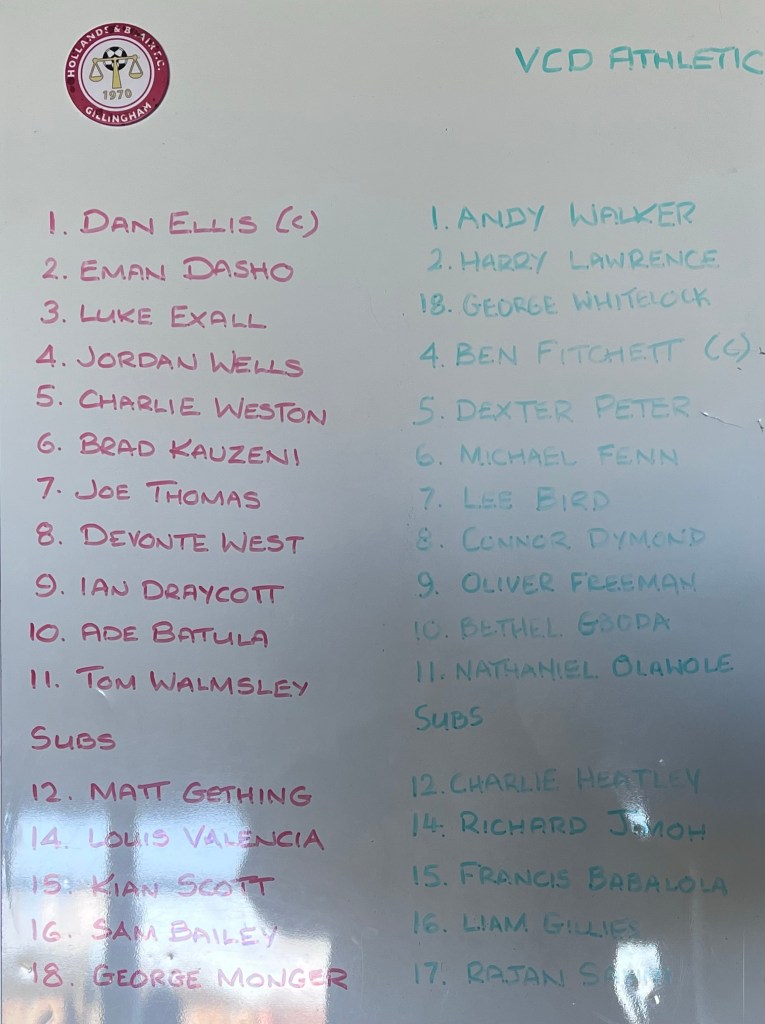 HOLLANDS & BLAIR F.C.
1970
GILLINGHAM
VCD ATHLETIC
1. DAN ELLIS (C)
2. EMAN DASHO
3. LUKE EXALL
4. JORDAN WELLS
5. CHARLIE WESTON
6. BRAD KAUZENI
7. JOE THOMAS
8. DEVONTE WEST
9. IAN DRAYCOTT
10. ADE BATULA
11. TOM WALMSLEY
SUBS
12. MATT GETHING
14. LOUIS VALENCIA
15. KIAN SCOTT
16. SAM BAILEY
18. GEORGE MONGER
1. ANDY WALKER
2. HARRY LAWRENCE
18. GEORGE WHITELOCK
4. BEN FITCHETT (C)
5. DEXTER PETER
6. MICHAEL FENN
7. LEE BIRD
8. CONNOR DYMOND
9. OLIVER FREEMAN
10. BETHEL GBODA
11. NATHANIEL OLAWOLE
SUBS
12. CHARLIE HEATLEY
14. RICHARD JIMOH
15. FRANCIS BABALOLA
16. LIAM GILLIES
17. RAJAN